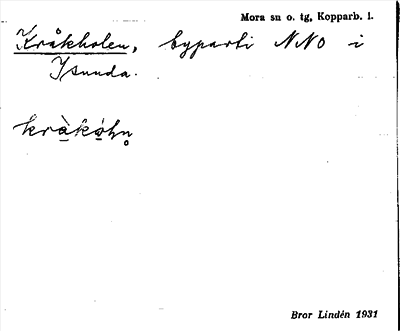 Mora sn o. tg, Kopparb. l.
Kråkholen, byparti NNO i
Isunda.
kràkóhn̥
Bror Lindén 1931